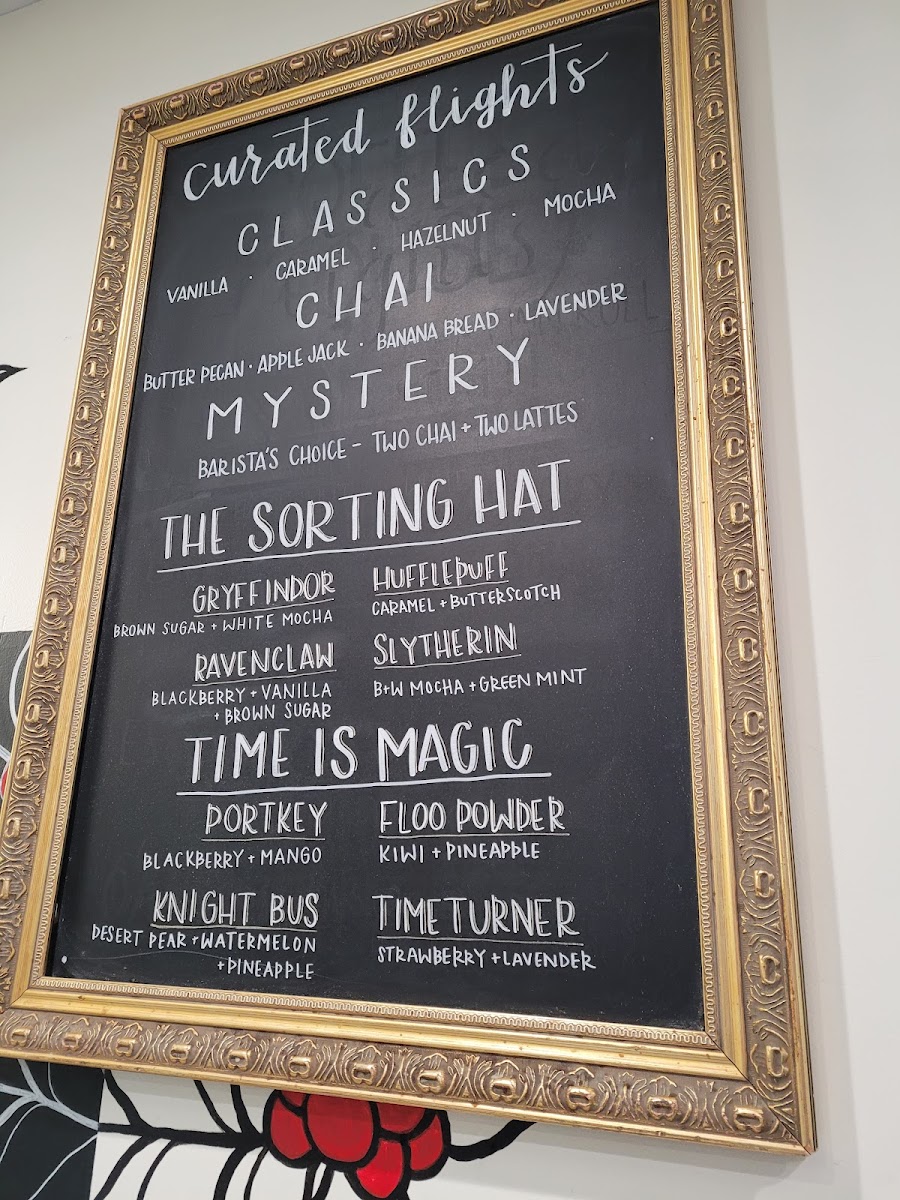 curated flights
CLASSICS
VANILLA · CARAMEL · HAZELNUT · MOCHA
CHAI
BUTTER PECAN · APPLE JACK · BANANA BREAD · LAVENDER
MYSTERY
BARISTA'S CHOICE - TWO CHAI + TWO LATTES
THE SORTING HAT
GRYFFINDOR
BROWN SUGAR + WHITE MOCHA
HUFFLEPUFF
CARAMEL + BUTTERSCOTCH
RAVENCLAW
BLACKBERRY + VANILLA
+ BROWN SUGAR
SLYTHERIN
B+W MOCHA + GREEN MINT
TIME IS MAGIC
PORTKEY
BLACKBERRY + MANGO
FLOO POWDER
KIWI + PINEAPPLE
KNIGHT BUS
DESERT PEAR + WATERMELON
+ PINEAPPLE
TIMETURNER
STRAWBERRY + LAVENDER